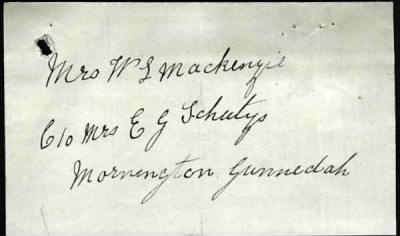 Mrs W L Mackenzie
C/o Mrs E G Scheetys
Mornington Gunnedah